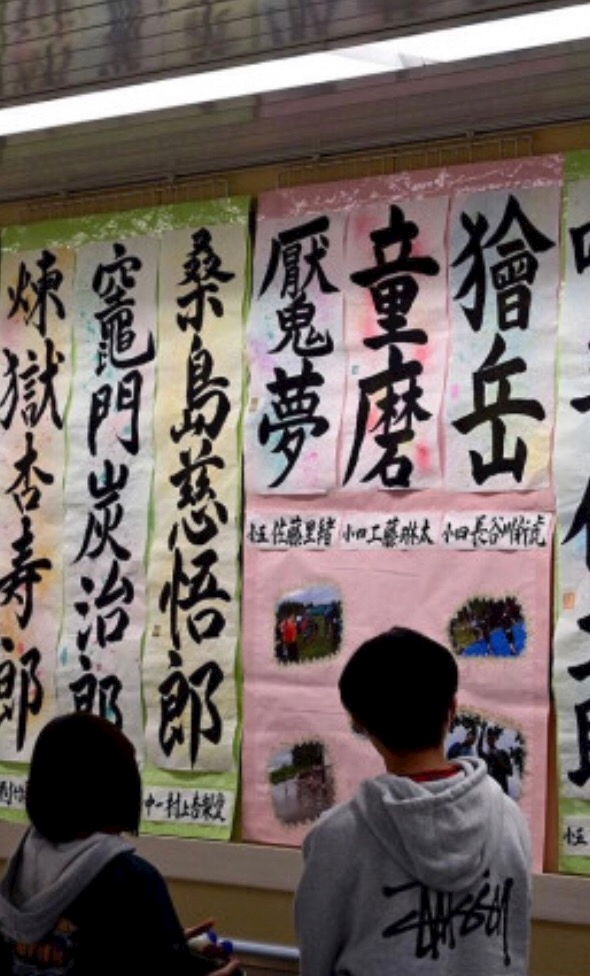 獪岳
童磨
魘夢
小四 長谷川
小四 工藤琳太
小五 佐藤里緒
桑島慈悟郎
竈門炭治郎
煉獄杏寿郎
中一 村上杏
小五